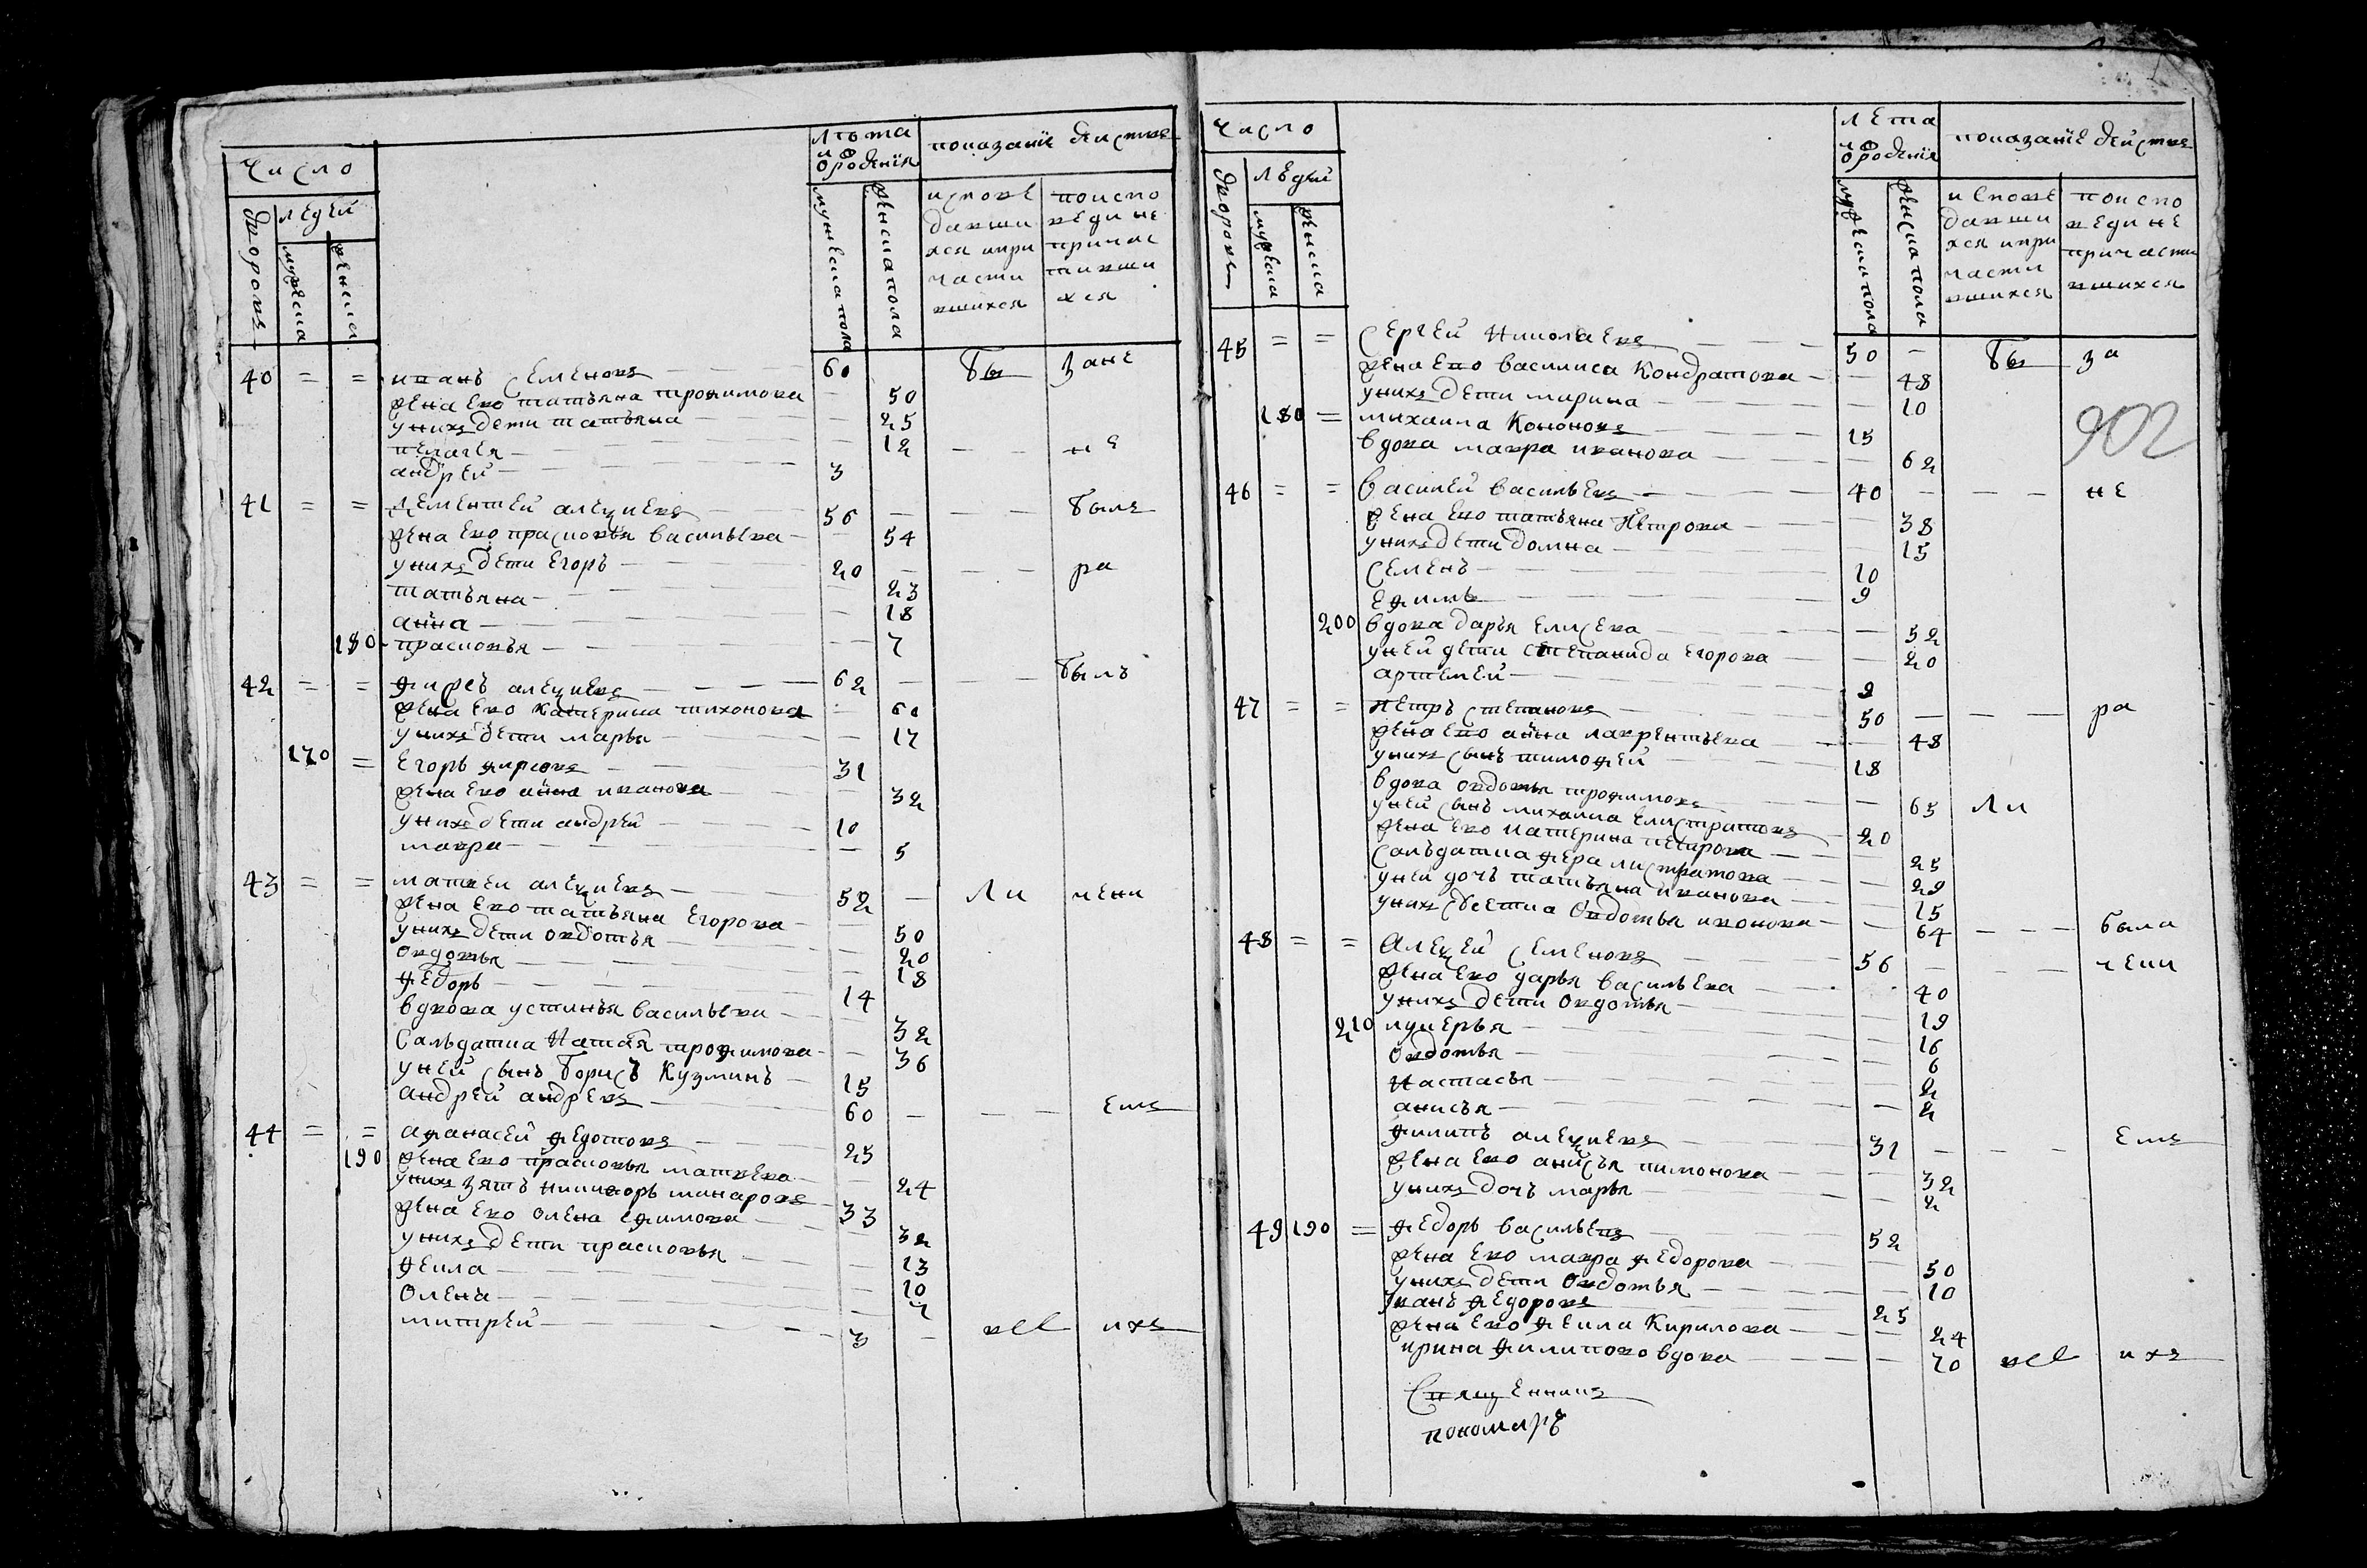 число
лѣта
ѿ рождения
показание действа
дворовъ
людей
мужеска
женска
мужеска пола
женска пола
испове
давши
хся и при
части
вшихся
по испо
веди не
причас
тивши
хся
40 = = иванъ Семеновъ — 60 бы зане
жена ево татьяна трофимова — 50
у нихъ дети татьяна — 25
пелагея — 12 — — не
андрей — 3
41 = = Дементей алеѯиевъ — 56 — — — былъ
жена ево прасковья васильева — 54
у нихъ дети Егоръ — 20 — — — ра
татьяна — 23
анна — 18
180 прасковья — 7
42 = = фирсъ алеѯиевъ — 62 — — — былъ
жена ево катерина тихонова — 60
у нихъ дети марья — 17
170 = Егоръ фирсовъ — 31
жена ево анна иванова — 32
у нихъ дети андрей — 10
мавра — 5
43 = = матвеи алеѯиевъ — 52 — Ли чени
жена ево татьяна Егорова — 50
у нихъ дети овдотья — 20
овдотья — 18
федоръ — 14
вдова устинья васильева — 32
Салъдатка Наталья трофимова — 36
у ней сынъ борисъ Кузминъ — 15
андрей андреевъ — 60 — — — емъ
44 = = афанасей федотовъ — 25
190 жена ево прасковья матвеева — 24
у нихъ зять никифоръ макаровъ — 33
жена ево олена ефимова — 32
у нихъ дети прасковья — 13
фекла — 10
Олена — 7
митрей — 3 — всѣ ихъ
число
лета
ѿ рождения
показание действа
дворовъ
людей
мужеска
женска
мужеска пола
женска пола
испове
давши
хся и при
части
вшихся
по испо
веди не
причасти
вшихся
45 = = Сергей Николаевъ — 50 — бы за
жена ево василиса Кондратова — 48
у нихъ дети марина — 10
180 = михаила Кононовъ — 15
вдова мавра иванова — 62
902
46 = = василей васильевъ — 40 — — — не
жена ево татьяна Петрова — 38
у нихъ дети домна — 15
Семенъ — 10
Ефимъ — 9
200 вдова дарья елисева — 52
у ней дети степанида Егорова — 20
артемей — 9
47 = = Петръ степановъ — 50 — — — ра
жена ево анна лаврентьева — 48
у нихъ сынъ тимофей — 18
вдова овдотья трофимова — 65 Ли
у ней сынъ михаила елистратовъ — 20
жена ево катерина петрова — 25
Салъдатка фера листратова — 29
у ней дочь татьяна иванова — 15
у нихъ овдотья иконова — 64 — — — была
48 = = Алеѯей Семеновъ — 56 — — — чени
жена ево дарья васильева — 40
у нихъ дети овдотья — 19
210 лукерья — 16
овдотья — 6
Настасья — 2
анисья — 2
филипъ алеѯиевъ — 31 — — — емъ
жена ево анисья пимонова — 32
у нихъ дочь марья — 2
49 190 = федоръ васильевъ — 52
жена ево мавра федорова — 50
у нихъ дети овдотья — 10
Иванъ федоровъ — 25
жена ево фекла Кирилова — 24
ирина филипово вдова — 70 всѣ ихъ
Священникъ
пономарь